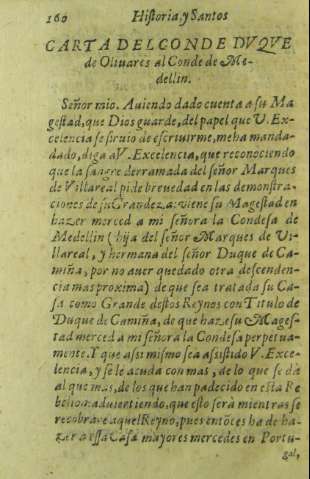 160 Historia, y Santos
CARTA DEL CONDE DVQVE
de Oliuares al Conde de Me-
dellin.
Señor mio. Auiendo dado cuenta a su Ma
gestad, que Dios guarde, del papel que V. Ex-
celencia se siruio de escriuirme, me ha manda-
dado, diga a V. Excelencia, que reconociendo
que la sangre derramada del señor Marques
de Villareal pide breuedad en las demonstra-
ciones de su Grandeza: viene su Magestad en
hazer merced a mi señora la Condesa de
Medellin (hija del señor Marques de Vi-
llareal, y hermana del señor Duque de Ca-
miña, por no auer quedado otra descenden-
cia mas proxima) de que sea tratada su Ca-
sa como Grande destos Reynos con Titulo de
Duque de Camiña, de que haze su Mages-
tad merced a mi señora la Condesa perpetua-
mente. Y que assi mismo sea assistido V. Exce-
lencia, y se le acuda con mas, de lo que se dà
al que mas, de los que han padecido en esta Re
belion: aduirtiendo, que esto serà mientras se
recobrare aquel Reyno, pues entõces ha de ha-
zer a essa Casa mayores mercedes en Portu-
gal,